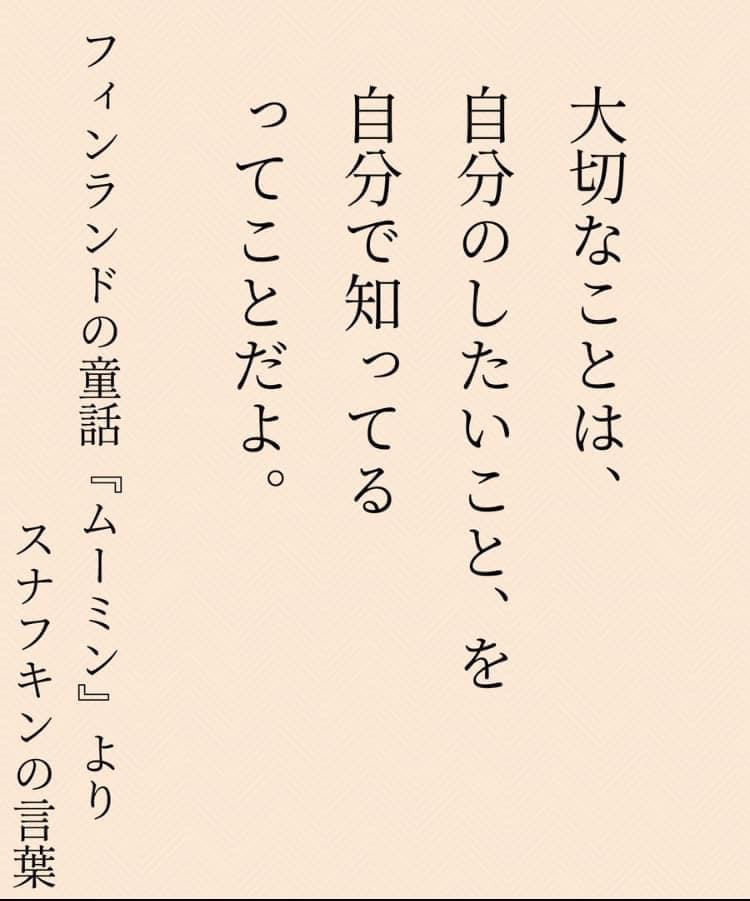 大切なことは、
自分のしたいこと、を
自分で知ってる
ってことだよ。
フィンランドの童話『ムーミン』より
スナフキンの言葉